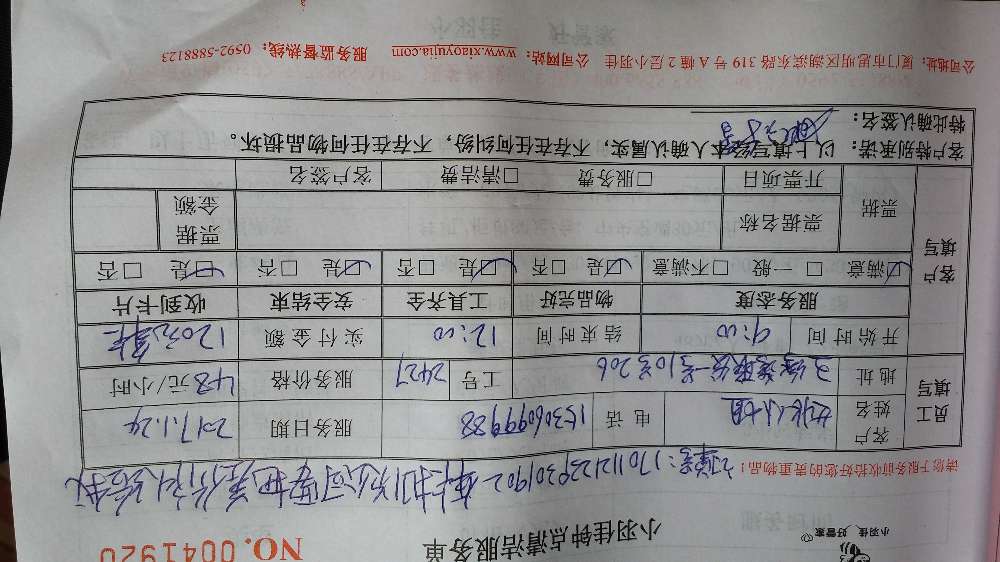 小羽佳 好管家
小羽佳钟点清洁服务单
NO. 0041920
请您于服务前收拾好您的贵重物品!
员工填写
客户姓名 小姐 电话 15306099988 服务日期 2017.1.24
地址 号10号206 工号 2427 服务价格 48元/小时
客户填写
开始时间 9:00 结束时间 12:00 实付金额 120元
服务态度 物品完好 工具齐全 安全结束 收到卡片
☑满意 □一般 □不满意 ☑是 □否 ☑是 □否 ☑是 □否 ☑是 □否
票据 票据名称 票据金额
开票项目 □服务费 □清洁费 客户签名
客户特别承诺: 以上填写经本人确认属实,不存在任何纠纷,不存在任何物品损坏。
特此确认签名:
公司地址: 厦门市思明区湖滨东路 319 号 A 幢 2 层小羽佳 公司网站: www.xiaoyujia.com 服务监督热线: 0592-5888123